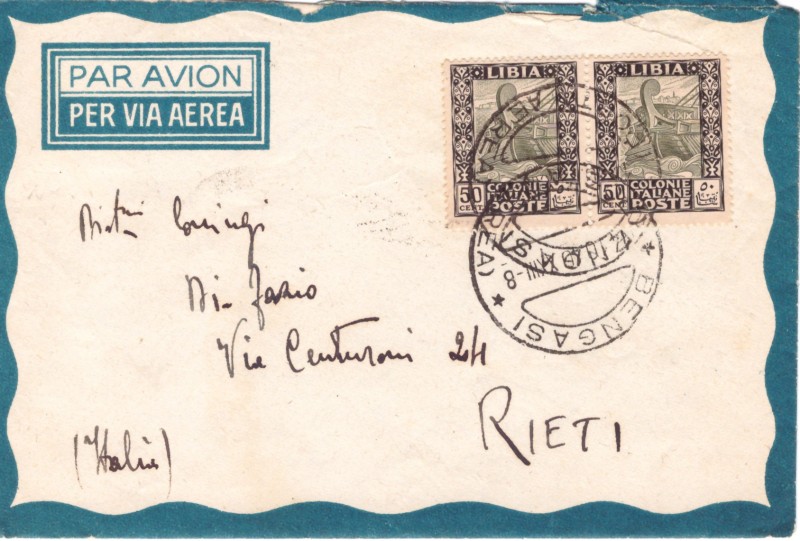 PAR AVION
PER VIA AEREA
LIBIA
50
CENT
COLONIE
ITALIANE
POSTE
LIBIA
50
CENT
COLONIE
ITALIANE
POSTE
٥٠
BENGASI
Di Fazio
Via Centuroni 24
RIETI
(Italia)